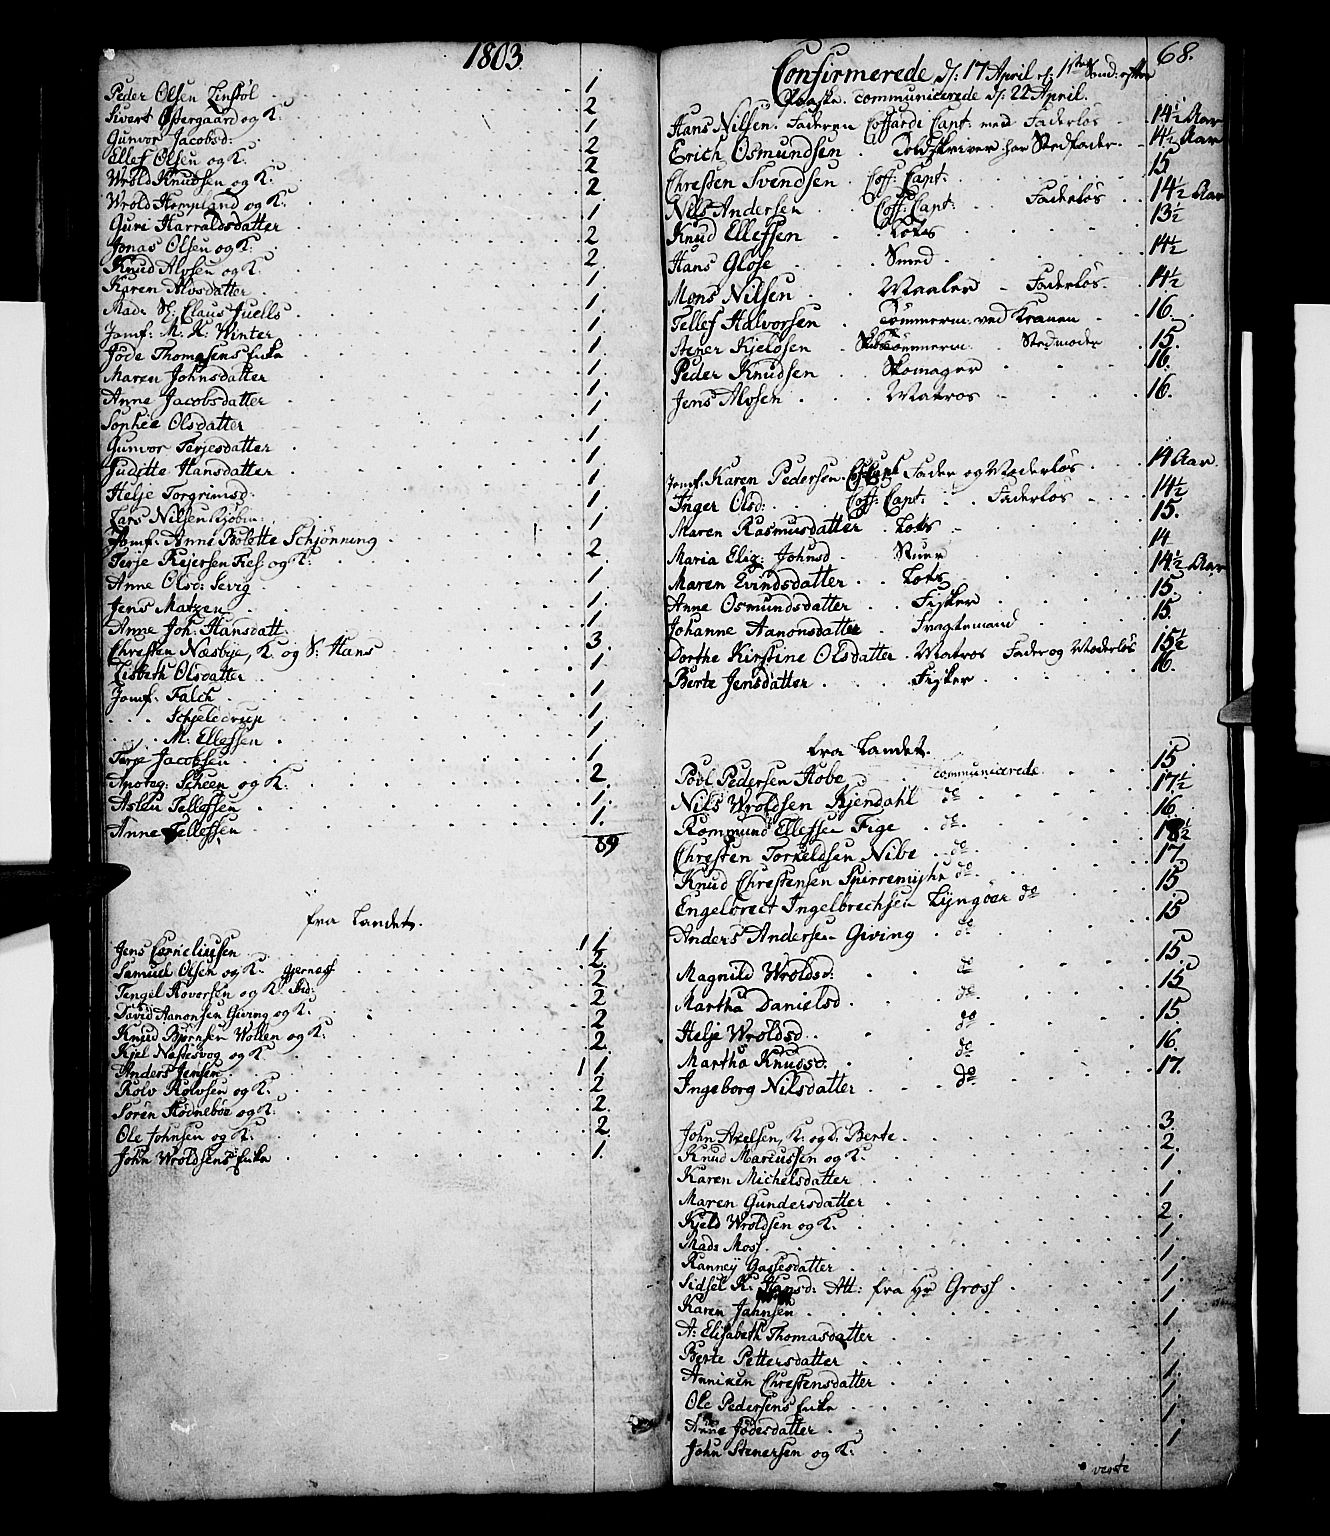 1803
Peder Olsen Linstöl 1
Sivert Östergaard og K. 2
Gunvor Jacobsd: 1
Ellef Olsen og K. 2
Wrold Knudsen og K. 2
Wrold Hempland og K. 2
Guri Harraldsdatter 1
Jonas Olsen og K. 2
Knud Alvsen og K. 2
Karen Alvsdatter 1
Mad: Sl: Claus Juells 1
Jomf: M. K. Winter 1
Jöde Thomesens Enke 1
Maren Johnsdatter 1
Anne Jacobsdatter 1
Sophie Olsdatter 1
Gunvor Terjesdatter 1
Juditte Hansdatter 1
Helje Torgrimsd: 1
Lars Nilsen 1
Jomf: Anne Bolette Schjönning 1
Terje Reiersen og K. 2
Anne Olsd: Sevig 1
Jens Matzen 1
Anne Joh: Hansdatt: 1
Chresten Næsbye, K. og S: Hans 3.
Lisbeth Olsdatter 1
Jomf: Falch 1
Schjeldrup 1
M. Ellefsen 1
Terje Jacobsen 1
Scheen og K. 2
Aslau Tellefsen 1
Anne Tellefsen 1.
89
fra Landet.
Jens Corneliussen 1 1
Samuel Olsen og K. Gjernæss 2
Tengel Aavorsen og K. ibid: 2
David Aanonsen Giving og K. 2
Knud Björnsen Wollen og K. 2
Kjel Næstesvog og K. 2
Anders Jensen 1 1
Rolv Rolvsen og K. 2
Sören Hödnebøe og K. 2.
Ole Johnsen og K. 2
John Wroldsens Enke 1.
68.
Confirmerede d: 17 April 1ste Sönd: efter
Paaske. communicerede d: 22 April.
Hans Nilsen. Faderen Coffardi Capt: med Faderlös 14½ Aar
Erich Osmundsen Toldskriver har Stedfader 14½ Aar
Chresten Svendsen Coff: Capt: 15
Nils Andersen Coff: Capt: Faderlös 14½ Aar
Knud Ellefsen Lots 13½
Hans Glose Smed 14½
Mons Nilsen Maaler Faderlös 14½
Tellef Halvorsen Tömmerm: ved Kranen 16.
Stener Kjeldsen Tömmerm: Stedmoder 15.
Peder Knudsen Skomager 16.
Jens Alvsen Matros 16.
Jomf: Karen Pedersen Fader og Moderlös 14 Aar
Inger Olsd: Coff: Capt: Faderlös 14½
Maren Rasmusdatter Lots 15.
Maria Eliz: Johnsd 14
Maren Evindsdatter Lots 14½ Aar
Anne Osmundsdatter Fisker 15.
Johanne Aanonsdatter Fragtemand 15.
Dorthe Kirstine Olsdatter Matros Fader og Moderlös 15½
Berte Jensdatter Fisker 16.
fra Landet.
Povl Pedersen Hobe communicerede 15
Nils Wroldsen Kjendahl do 17½
Rommund Ellefsen Fige do 16
Chresten Torkeldsen Nibe do 18½
Knud Chrestensen Spirremyhr do 17
Engelbrect Ingelbrechsen Lyngöer do 15
Anders Andersen Giving do 15
Magnild Wroldsd: do 15.
Martha Danielsd do 15
Helje Wroldsd do 15
Martha Knudsd. do 16.
Ingeborg Nilsdatter do 17.
John Axelsen, K. og D. Berte 3.
Knud Mariussen og K. 2.
Karen Michelsdatter 1
Maren Gundersdatter 1
Kjeld Wroldsen og K. 2.
Mads Moss 1
Ranney Gassesdatter 1
Sidsel K. Hansd: Att: fra Hr Gross 1
Karen Jahnsen 1
A: Elisabeth Thomasdatter 1
Berte Pettersdatter 1
Anniken Chrestensdatter 1
Ole Pedersens Enke 1
Anne Jödesdatter 1.
John Stenersen og K. 1
verte